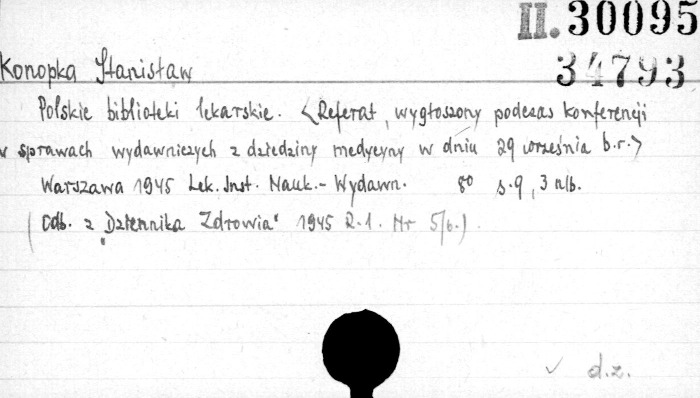 II. 30095
34793
Konopka Stanisław
Polskie biblioteki lekarskie. <Referat, wygłoszony podczas konferencji
w sprawach wydawniczych z dziedziny medycyny w dniu 29 września b.r.>
Warszawa 1945 Lek. Inst. Nauk.-Wydawn. 8o s. 9, 3 nlb.
(Odb. z "Dziennika Zdrowia" 1945 R.1. Nr 5/6.)
d.z.